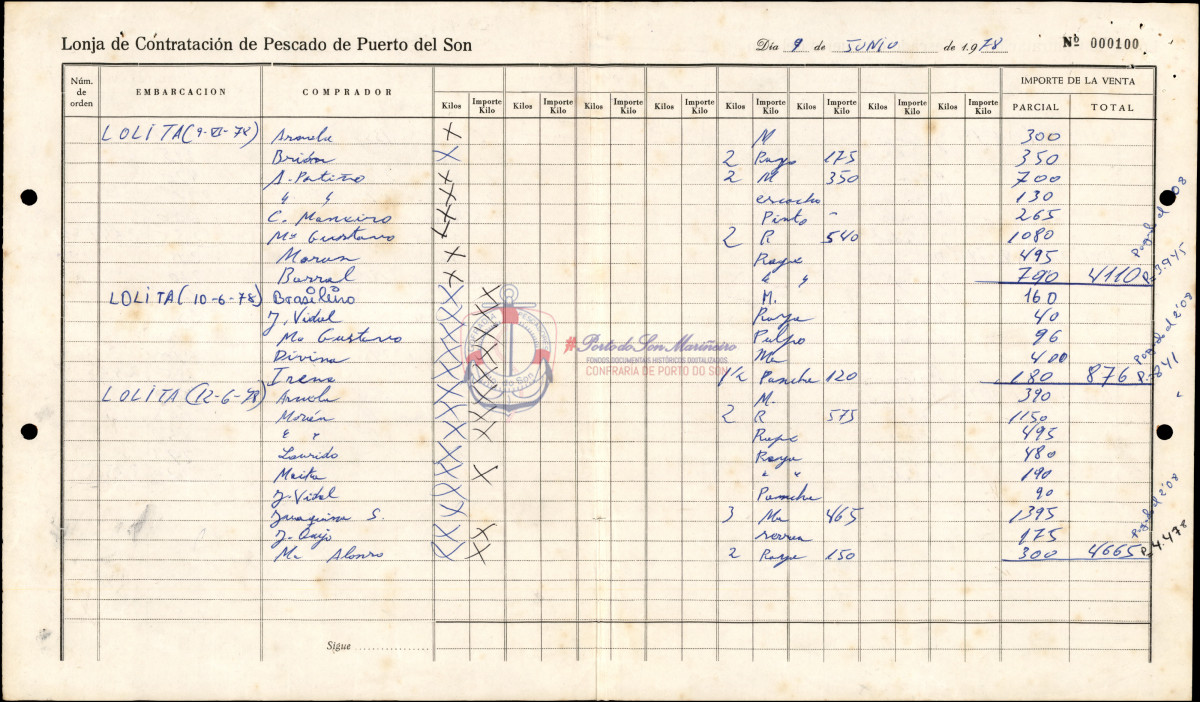 Lonja de Contratación de Pescado de Puerto del Son
Día 9 de JUNIO de 1.978
Nº 000100
Núm. de orden EMBARCACION COMPRADOR Kilos Importe Kilo Kilos Importe Kilo Kilos Importe Kilo Kilos Importe Kilo Kilos Importe Kilo Kilos Importe Kilo Kilos Importe Kilo Kilos Importe Kilo IMPORTE DE LA VENTA PARCIAL TOTAL
LOLITA (9-VI-78) M 300
2 Raya 175 350
A. Patiño 2 M 350 700
" " escacho 130
C. Maneiro Pinto 265
Mª Gustavo 2 R 540 1080
Raya 495
Barral " " 790 4110
LOLITA (10-6-78) Brasileiro M. 160
J. Vidal Raya 40
Mª Gustavo Pulpo 96
Divina Ma 400
Irene 1 ½ Pancha 120 180 876
LOLITA (12-6-78) M. 390
2 R 575 1150
" " Raya 495
Laurido Raya 480
Maita " " 190
J. Vidal Pancha 90
Joaquina S. 3 Ma 465 1395
175
Mª Alonso 2 Raya 150 300 4665
Pagado el 2'08
P= 3.945
Pagado el 2'08
P= 841
Pagado el 2'08
P= 4.478
#Porto do Son Mariñeiro
FONDOS DOCUMENTAIS HISTÓRICOS DIXITALIZADOS
CONFRARÍA DE PORTO DO SON
Sigue